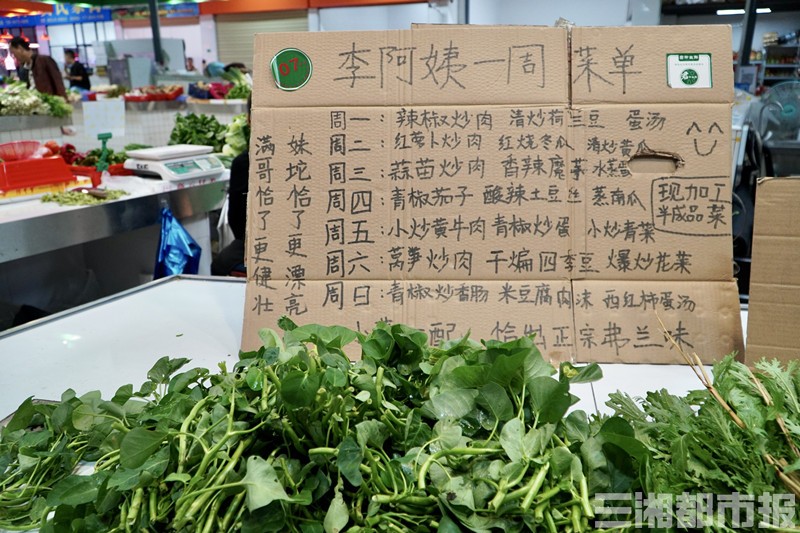 07
李阿姨一周菜单
周一：辣椒炒肉 清炒荷兰豆 蛋汤
周二：红萝卜炒肉 红烧冬瓜 清炒黄瓜
周三：蒜苗炒肉 香辣魔芋 水蒸蛋
周四：青椒茄子 酸辣土豆丝 蒸南瓜
周五：小炒黄牛肉 青椒炒蛋 小炒青菜
周六：莴笋炒肉 干煸四季豆 爆炒花菜
周日：青椒炒香肠 米豆腐肉沫 西红柿蛋汤
配 恰出正宗弗兰味
满哥恰了更健壮
妹坨恰了更漂亮
现加工
半成品菜
三湘都市报